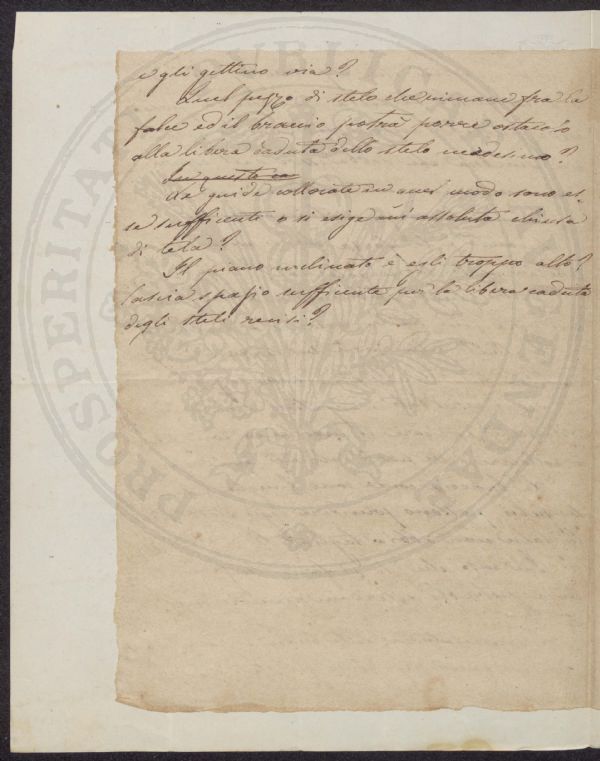 e gli gettino via?
Quel pezzo di stelo che rimane fra la
falce ed il braccio potrà porre ostacolo
alla libera caduta dello stelo medesimo?
In questo ca
Le guide collocate in quel modo sono es-
se sufficienti o si esige un' assoluta chiusa
di tela?
Il piano inclinato è egli troppo alto?
lascia spazio sufficiente per la libera caduta
degli steli recisi?
PROSPERITATI PUBLIC AUGENDAE